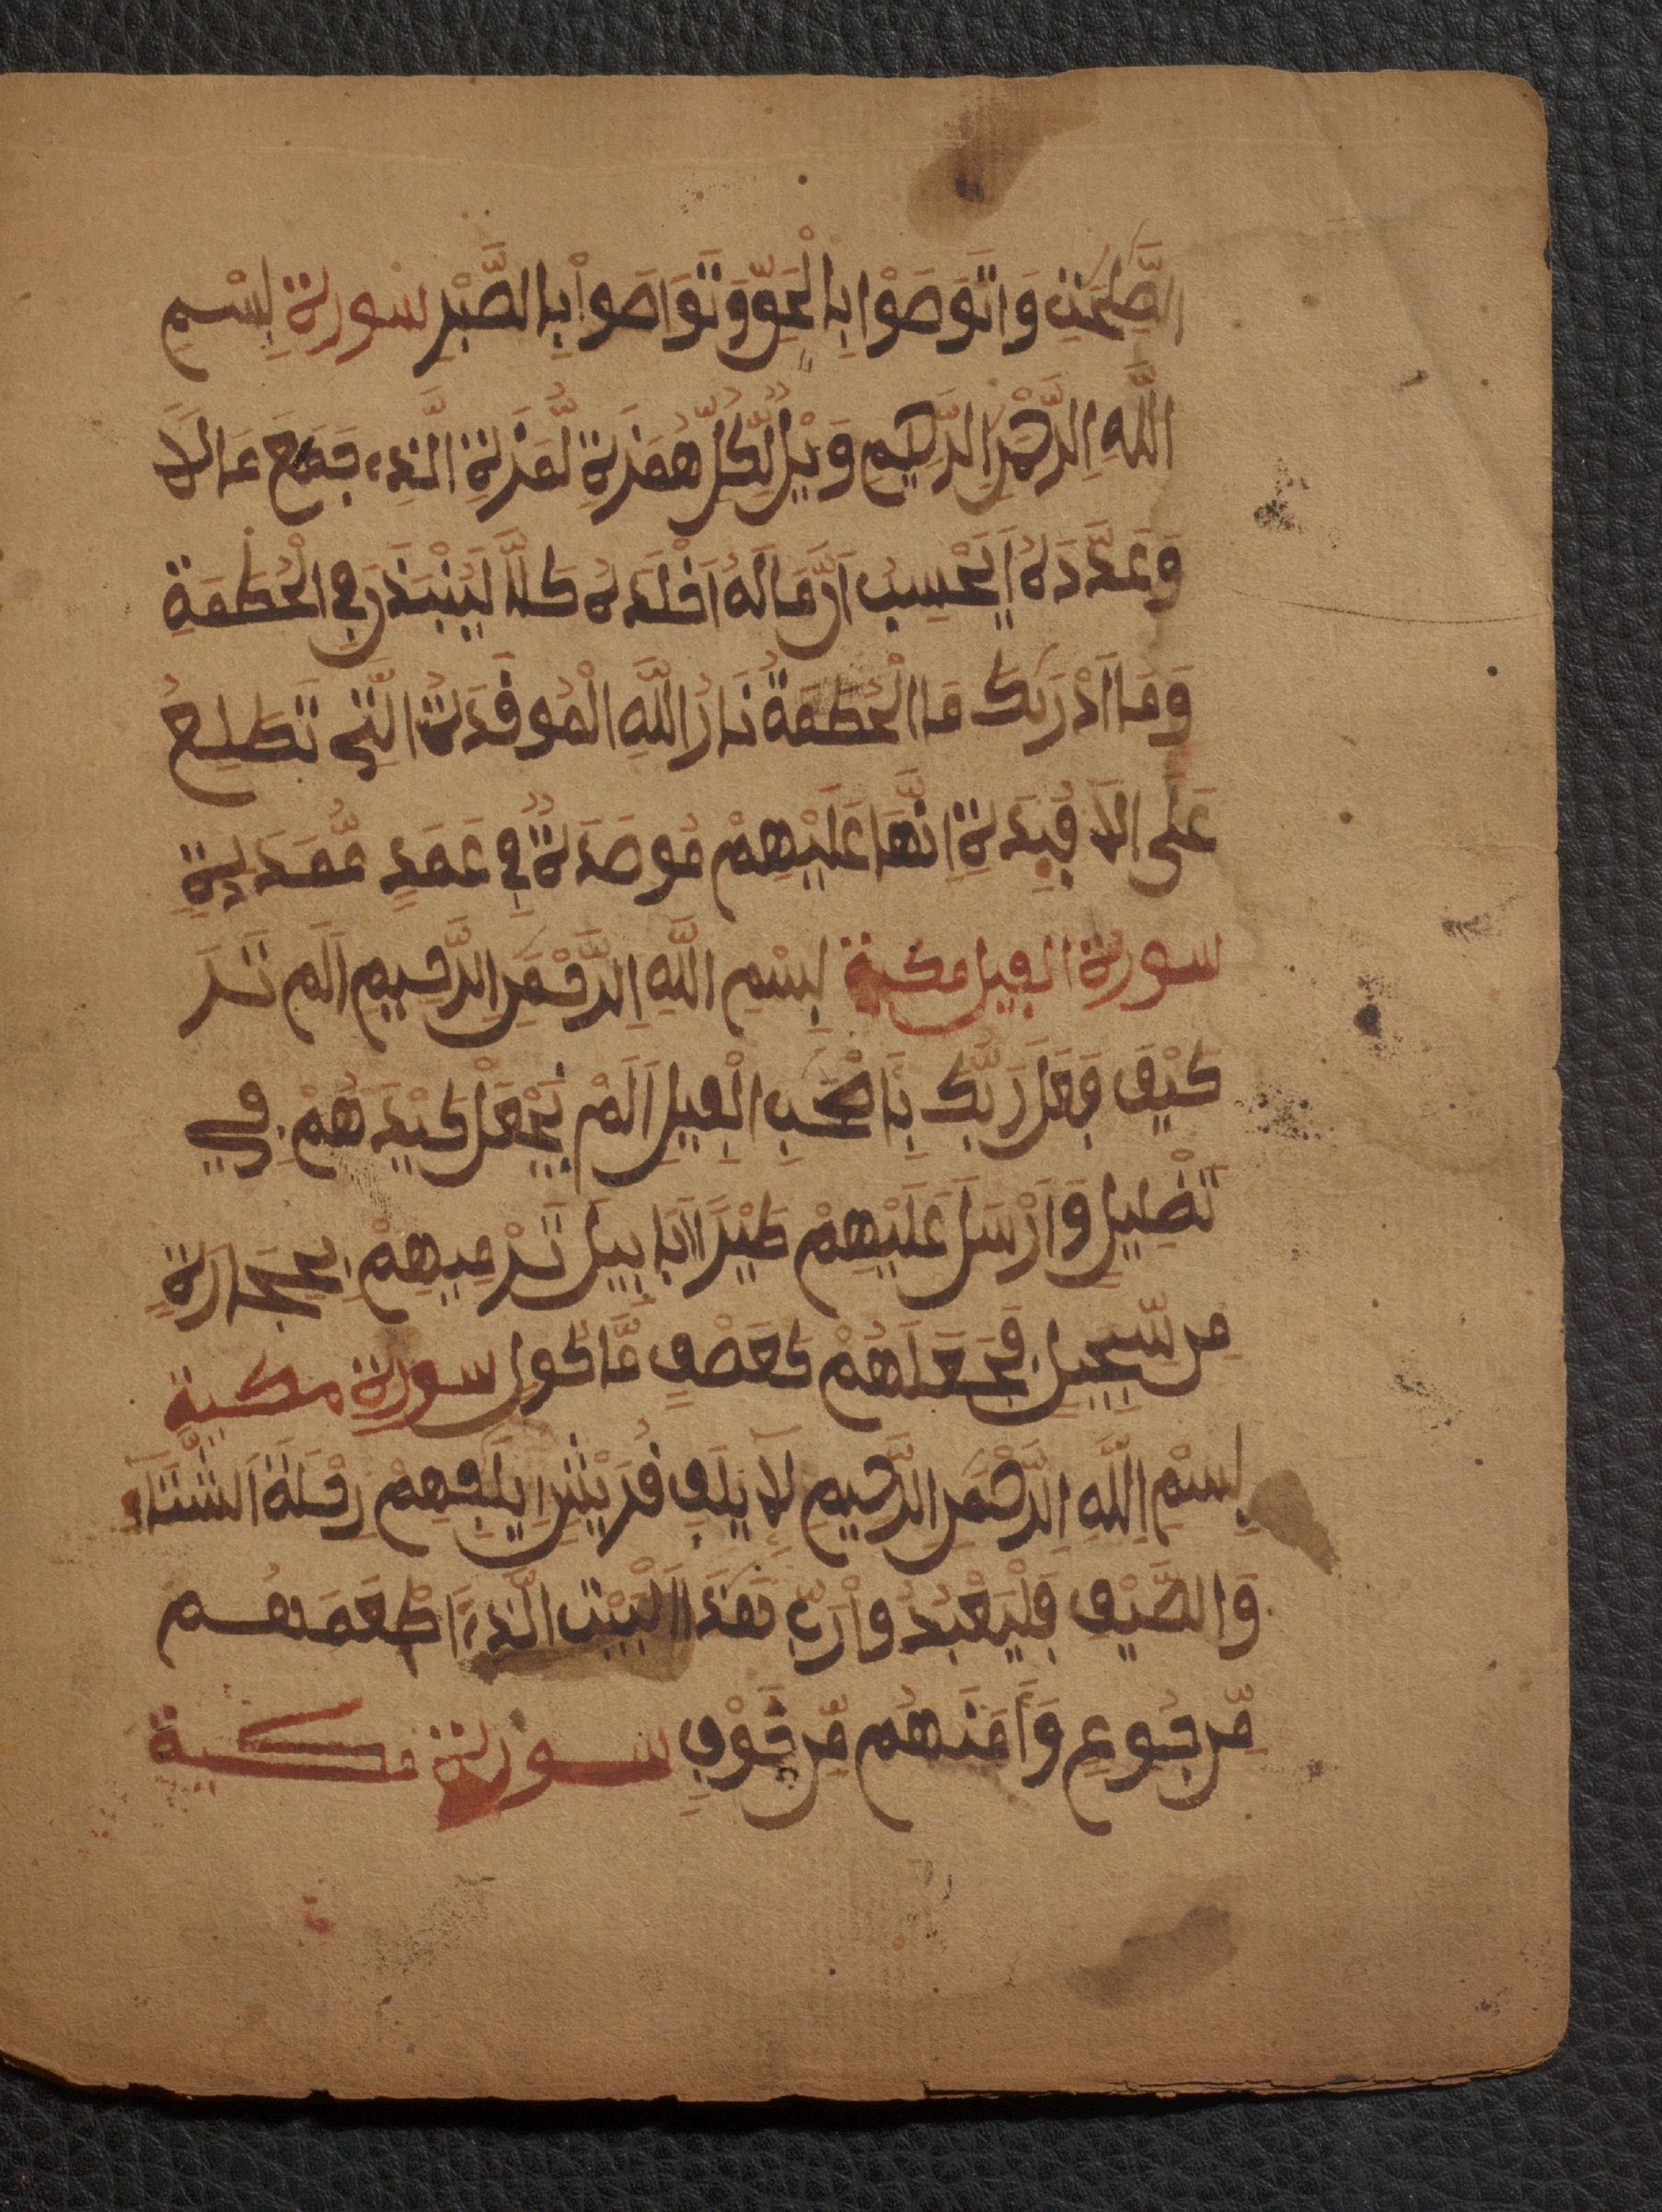 الصَّلِحَتِ وَاتَوَصَوْا بِالْحَقِّ وَتَوَاصَواْ بِالصَّبْرِ سورة بِسْمِ
اللَّهِ الرَّحْمَنِ الرَّحِيمِ وَيْلٌ لِّكُلِّ هُمَزَةٍ لُّمَزَةٍ الَّذِے جَمَعَ مَالَا
وَعَدَّدَهُ اَيَحْسِبُ أَنَّ مَالَهُ أَخْلَدَهُ كَلَّا لَيُنْبَذَنَّ فِي الْحُطَمَةِ
وَمَا أَدْرَىكَ مَا الْحُطَمَةُ نَارُ اللَّهِ الْمُوقَدَةُ الَّتِي تَطَّلِعُ
عَلَى الَافِْدَةِ إِنَّهَا عَلَيْهِمْ مُوصَدَةٌ فِي عَمَدٍ مُّمَدَدَةٍ
سورة الفيل مكية بِسْمِ اللَّهِ الرَّحْمَنِ الرَّحِيمِ أَلَمْ تَرَ
كَيْفَ فَعَلَ رَبُّكَ بِأَصْحَبِ الْفِيلِ أَلَمْ يَجْعَلْ كَيْدَهُمْ فِي
تَضْلِيلٍ وَأَرْسَلَ عَلَيْهِمْ طَيْرًا اَبَابِيلَ تَرْمِيهِمْ بِحِجَارَةٍ
مِن سِّجِيلٍ فَجَعَلَهُمْ كَعَصْفٍ مَّاكُولٍ سورة مكية
بِسْمِ اللَّهِ الرَّحْمَنِ الرَّحِيمِ لِإِيلَفِ قُرَيْشٍ إِيلَفِهِمْ رِحْلَةَ الشِّتَاءِ
وَالصَّيْفِ فَلْيَعْبُدُواْ رَبَّ هَذَا الْبَيْتِ الَّذِے أَطْعَمَهُم
مِّن جُوعٍ وَءَامَنَهُم مِّنْ خَوْفٍ سورة مكية